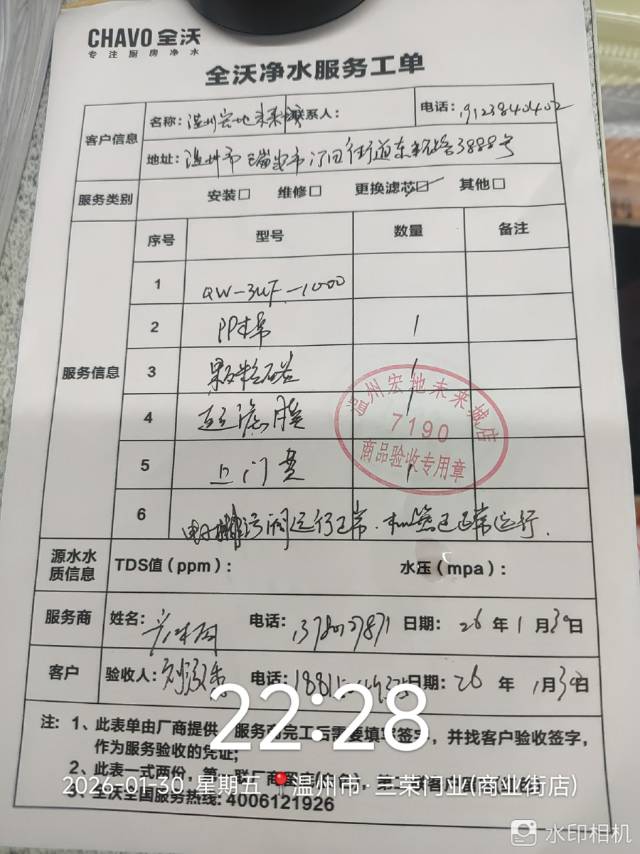 CHAVO 全沃
专注厨房净水
全沃净水服务工单
客户信息 名称: 温州宏地未来城 联系人: 电话: 19123840402
地址: 温州市瑞安市汀田街道东新路3888号
服务类别 安装□ 维修□ 更换滤芯☑ 其他□
服务信息 序号 型号 数量 备注
1 QW-3UF-1000
2 PP棉 1
3 颗粒碳 1
4 超滤膜 1
5 上门费 1
6 电子排污阀运行正常. 机器已正常运行.
温州宏地未来城店
7190
商品验收专用章
源水水质信息 TDS值(ppm): 水压(mpa):
服务商 姓名: 电话: 日期: 26年1月30日
客户 验收人: 电话: 日期: 26年1月30日
注: 1、此表单由厂商提供,服务商完工后需要填写签字,并找客户验收签字,
作为服务验收的凭证;
2、此表一式两份,第一联厂商
3、全沃全国服务热线: 4006121926
22:28
2026-01-30 星期五 温州市·三荣门业(商业街店)
水印相机